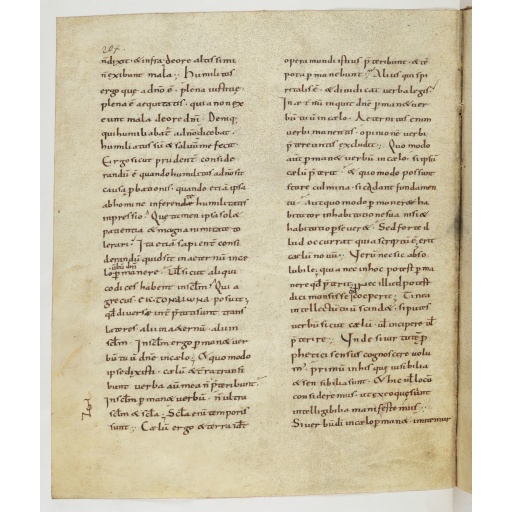 204.
n̄ dixit. & infra. de ore altissimi
n̄ exibunt mala; Humilitas
ergo que a dn̄o ē. plena iustitie
plena ē aequitatis. quia non ex
eunt mala de ore dn̄i. Deniq;
qui humiliabat adn̄o dicebat.
humiliatus sū & saluū me fecit
Ergo sicut prudent conside
randū ē quando humilitas adn̄o sit
causa p̱bationis. quando etiā ipsa
ab homine inferenda humilitatis
inpressio. Que tamen ipsa sola
patientia & magnanimitate to
lerari. Ita etiā sapient consi
derandū quid sit in aeternū in cae
lo p̱manere. Uel sicut aliqui
codices habent in sclm̄. Quia
grecus posuit;
qd̄ diverse interp̱tati sunt trans
latores. alii in aeternū. alii in
sclm̄. In sclm̄ ergo p̱manet ver
bū tuū dn̄e in caelo. & quo modo
ipse dixisti. caelū & terra transi
bunt verba aū mea n̄ p̱teribunt.
In sclm̄ p̱manet verbū. n̄ ultra
sclm̄ & scl̄a. Scl̄a enī temporis
sunt; Caelū ergo & terra id est
opera mundi istius p̱teribunt. & tē
pora p̱manebunt. Alius qui spi
ritalis ē. & diiudicat verba legis.
In aeternū inquit dn̄e p̱manet ver
bū tuū in caelo. Aeternitas enim
verbi manentis. opinionē verbi
p̱tereuntis excludit. Quo modo
aut p̱manet verbū in caelo. si ipsū
caelū p̱terit. & quo modo possunt
stare culmina. si cadant fundamen
ta. Aut quo modo p̱manet & ha
bitator in habitatione sua nisi &
habitatio p̱severet. Sed forte il
lud occurrat quia scriptū ē. erit
caelū novū. Verū nec sic abso
lubile. quia nec in hoc potest p̱ma
nere qd̄ p̱terit. nec illud potest
dici mansisse coeperit. Tinea
intellectū tuū scinde. si putes
verbū sicut caelū. ul̄ incipere ul̄
p̱terire. Unde si vir
pheticos sensus cognoscere volu
m̄. primū in his que visibilia
& sensibilia sunt. & hic ul̄ locū
consideremus. ut ex eo que sunt
intelligibilia manifestemus.
Si verbū dī in caelo p̱manet. imitemur